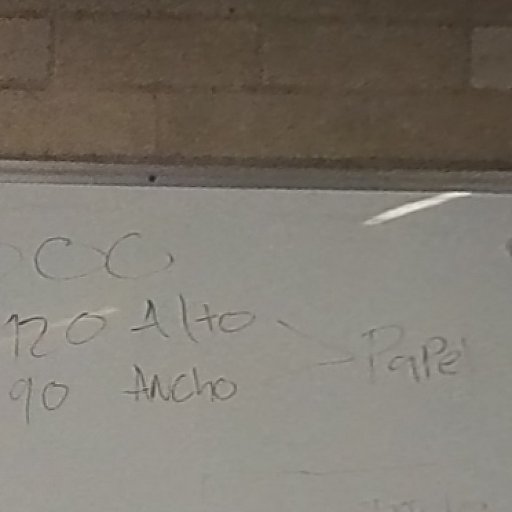 120 Alto
90 Ancho
Papel